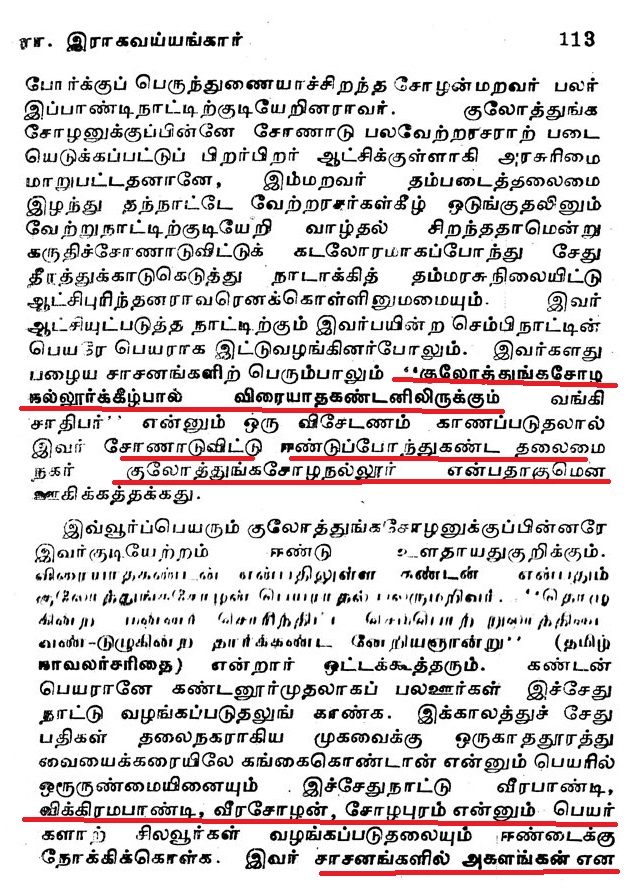 ரா. இராகவய்யங்கார் 113
போர்க்குப் பெருந்துணையாச்சிறந்த சோழன்மறவர் பலர்
இப்பாண்டிநாட்டிற்குடியேறினராவர். குலோத்துங்க
சோழனுக்குப்பின்னே சோணாடு பலவேற்றரசராற் படை
யெடுக்கப்பட்டுப் பிறர்பிறர் ஆட்சிக்குள்ளாகி அரசுரிமை
மாறுபட்டதனானே, இம்மறவர் தம்படைத்தலைமை
இழந்து தந்நாட்டே வேற்றரசர்கள்கீழ் ஒடுங்குதலினும்
வேற்றுநாட்டிற்குடியேறி வாழ்தல் சிறந்ததாமென்று
கருதிச்சோணாடுவிட்டுக் கடலோரமாகப்போந்து சேது
தீரத்துக்காடுகெடுத்து நாடாக்கித் தம்மரசுநிலையிட்டு
ஆட்சிபுரிந்தனராவரெனக்கொள்ளினுமமையும். இவர்
ஆட்சியுட்படுத்த நாட்டிற்கும் இவர்பயின்ற செம்பிநாட்டின்
பெயரே பெயராக இட்டுவழங்கினர்போலும். இவர்களது
பழைய சாசனங்களிற் பெரும்பாலும் "குலோத்துங்கசோழ
நல்லூர்க்கீழ்பால் விரையாதகண்டனிலிருக்கும் வங்கி
சாதிபர்" என்னும் ஒரு விசேடணம் காணப்படுதலால்
இவர் சோணாடுவிட்டு ஈண்டுப்போந்துகண்ட தலைமை
நகர் குலோத்துங்கசோழநல்லூர் என்பதாகுமென
ஊகிக்கத்தக்கது.
இவ்வூர்ப்பெயரும் குலோத்துங்கசோழனுக்குப்பின்னரே
இவர்குடியேற்றம் ஈண்டு உளதாயதுகுறிக்கும்.
விரையாதகண்டன் என்பதிலுள்ள கண்டன் என்பதும்
குலோத்துங்கசோழன் பெயராதல் பலருமறிவர். "தொழு
கின்ற மன்னர் சொரிந்திட்ட செம்பொற்
வண்டுழுகின்ற தார்க்கண்ட னேறியஞான்று" (தமிழ்
நாவலர்சரிதை) என்றார் ஒட்டக்கூத்தரும். கண்டன்
பெயரானே கண்டனூர்முதலாகப் பலஊர்கள் இச்சேது
நாட்டு வழங்கப்படுதலுங் காண்க. இக்காலத்துச் சேது
பதிகள் தலைநகராகிய முகவைக்கு ஒருகாததூரத்து
வையைக்கரையிலே கங்கைகொண்டான் என்னும் பெயரில்
ஒரூருண்மையினையும் இச்சேதுநாட்டு வீரபாண்டி,
விக்கிரமபாண்டி, வீரசோழன், சோழபுரம் என்னும் பெயர்
களாற் சிலவூர்கள் வழங்கப்படுதலையும் ஈண்டைக்கு
நோக்கிக்கொள்க. இவர் சாசனங்களில் அகளங்கன் என